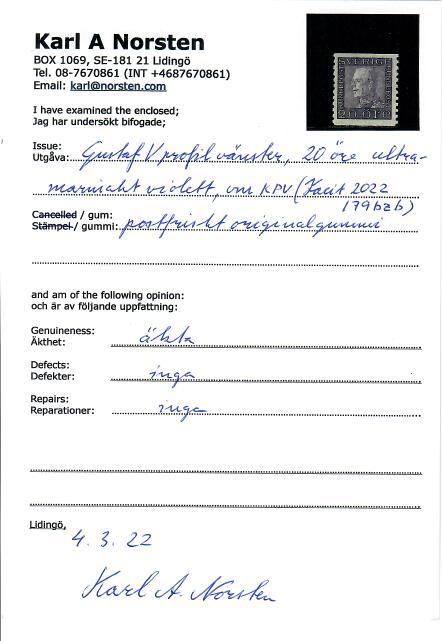 Karl A Norsten
BOX 1069, SE-181 21 Lidingö
Tel. 08-7670861 (INT +4687670861)
Email: karl@norsten.com
SVERIGE
20 ÖRE
I have examined the enclosed;
Jag har undersökt bifogade;
Issue:
Utgåva: Gustaf V profil vänster, 20 öre ultra-
marinaht violett, vm KPV (Facit 2022
179bzb)
Cancelled / gum:
Stämpel / gummi: postfriskt originalgummi
and am of the following opinion:
och är av följande uppfattning:
Genuineness:
Äkthet: äkta
Defects:
Defekter: inga
Repairs:
Reparationer: inga
Lidingö,
4. 3. 22
Karl A. Norsten